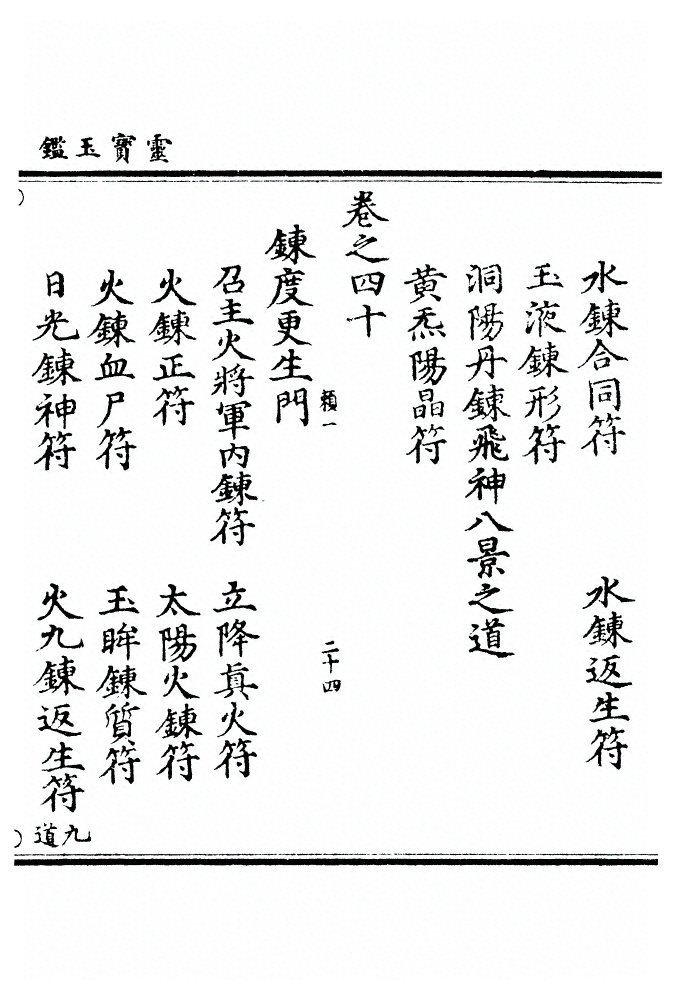 靈寶玉鑑
水鍊合同符　水鍊返生符
玉液鍊形符
洞陽丹鍊飛神八景之道
黃炁陽晶符
卷之四十
頼一　二十四
鍊度更生門
召主火將軍內鍊符　立降真火符
火鍊正符　太陽火鍊符
火鍊血尸符　玉眸鍊質符
日光鍊神符　火九鍊返生符九道